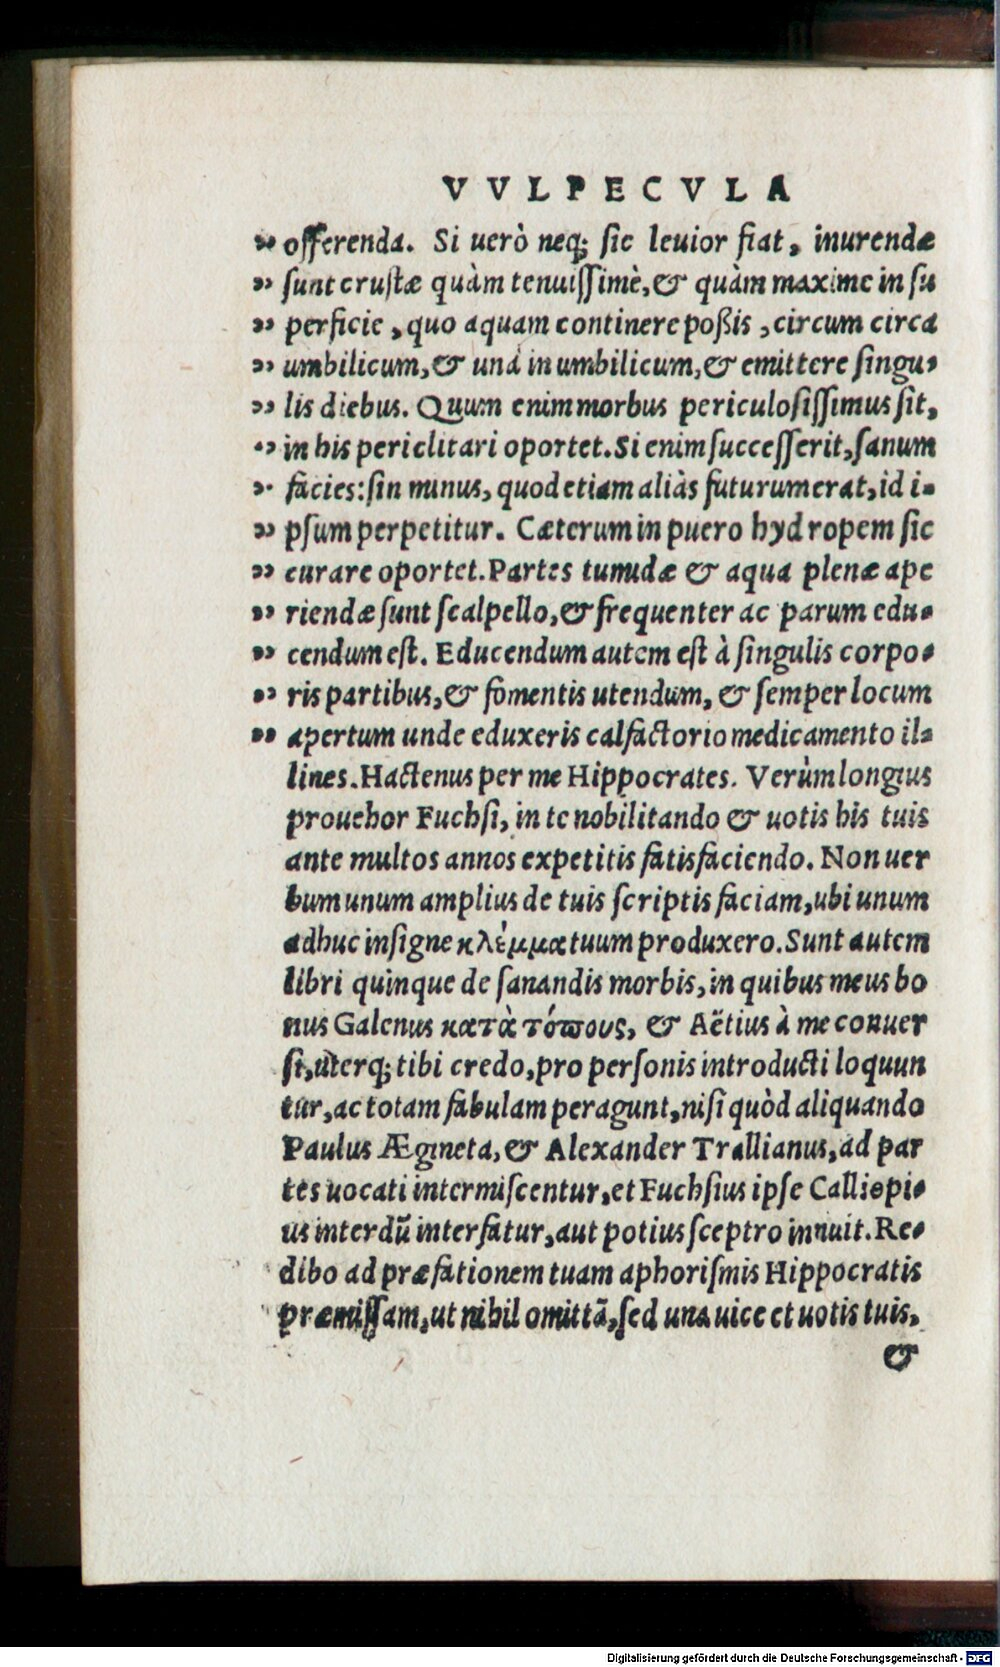 VVLPECVLA
„ offerenda. Si uerò neq; sic leuior fiat, inurendæ
„ sunt crustæ quàm tenuissimè, & quàm maxime in su
„ perficie, quo aquam continere poßis, circum circa
„ umbilicum, & unà in umbilicum, & emittere singu-
„ lis diebus. Quum enim morbus periculosissimus sit,
„ in his periclitari oportet. Si enim successerit, sanum
„ facies: sin minus, quod etiam aliàs futurum erat, id i-
„ psum perpetitur. Cæterum in puero hydropem sic
„ curare oportet. Partes tumidæ & aqua plenæ ape
„ riendæ sunt scalpello, & frequenter ac parum edu-
„ cendum est. Educendum autem est à singulis corpo-
„ ris partibus, & fomentis utendum, & semper locum
„ apertum unde eduxeris calfactorio medicamento il-
lines. Hactenus per me Hippocrates. Verùm longius
prouehor Fuchsi, in te nobilitando & uotis his tuis
ante multos annos expetitis satisfaciendo. Non uer
bum unum amplius de tuis scriptis faciam, ubi unum
adhuc insigne κλέμμα tuum produxero. Sunt autem
libri quinque de sanandis morbis, in quibus meus bo
nus Galenus κατὰ τόπους, & Aëtius à me conuer
si, uterq; tibi credo, pro personis introducti loquun
tur, ac totam fabulam peragunt, nisi quòd aliquando
Paulus Ægineta, & Alexander Trallianus, ad par
tes uocati intermiscentur, et Fuchsius ipse Calliopi-
us interdũ interfatur, aut potius sceptro innuit. Re-
dibo ad præfationem tuam aphorismis Hippocratis
præmissam, ut nihil omittã, sed una uice et uotis tuis,
&
Digitalisierung gefördert durch die Deutsche Forschungsgemeinschaft - DFG